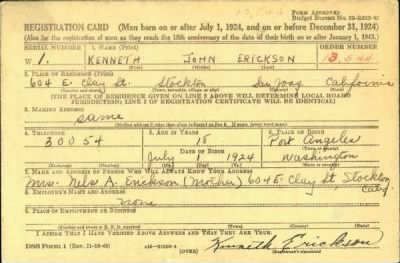 FORM APPROVED
Budget Bureau No.
REGISTRATION CARD (Men born on or after July 1, 1924, and on or before December 31, 1924)
(Also for the registration of men as they reach the 18th anniversary of the date of their birth on or after January 1, 1943.)
SERIAL NUMBER 1. NAME (Print)
W 1. KENNETH JOHN ERICKSON
(First) (Middle) (Last)
2. PLACE OF RESIDENCE (Print)
604 E. Clay St. Stockton San Joaq. California
(Number and street) (Town, township, village, or city) (County) (State)
[THE PLACE OF RESIDENCE GIVEN ON LINE 2 ABOVE WILL DETERMINE LOCAL BOARD
JURISDICTION; LINE 2 OF REGISTRATION CERTIFICATE WILL BE IDENTICAL]
3. MAILING ADDRESS
same
4. TELEPHONE 5. AGE IN YEARS 6. PLACE OF BIRTH
30054 18 Port Angeles
DATE OF BIRTH (Town or county)
July 1 1924 Washington
(Mo.) (Day) (Yr.) (State or country)
7. NAME AND ADDRESS OF PERSON WHO WILL ALWAYS KNOW YOUR ADDRESS
Mrs. Nels A. Erickson (Mother) 604 E. Clay St Stockton
Calif.
8. EMPLOYER'S NAME AND ADDRESS
none
9. PLACE OF EMPLOYMENT OR BUSINESS
I AFFIRM THAT I HAVE VERIFIED ABOVE ANSWERS AND THAT THEY ARE TRUE.
DSS Form 1 (OVER) Kenneth Erickson
(Registrant's signature)